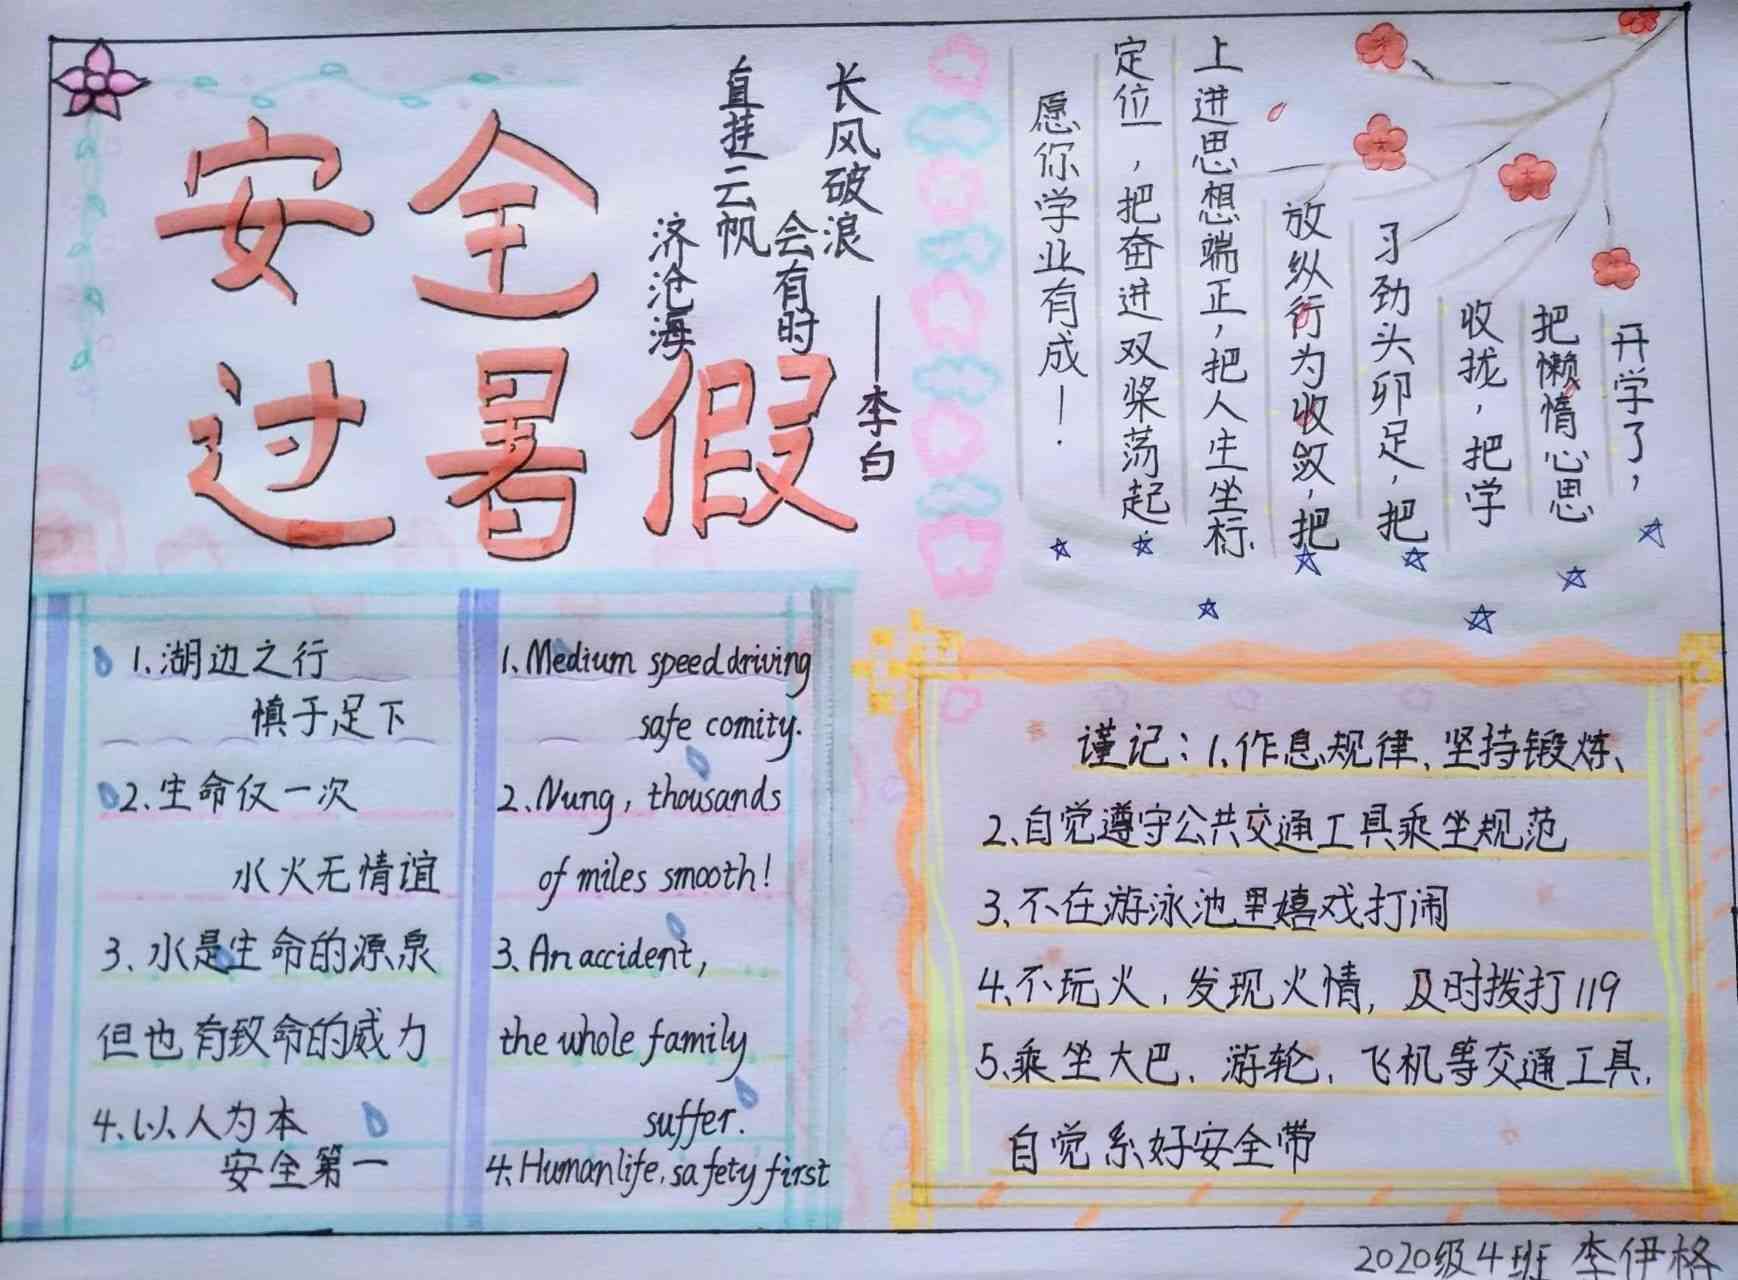 安全
过暑假
长风破浪
会有时
直挂云帆
济沧海
——李白
开学了，
把懒惰心思
收拢，把学
习劲头卯足，把
放纵行为收敛，把
上进思想端正，把人生坐标
定位，把奋进双桨荡起
愿你学业有成！
1、湖边之行
慎于足下
2、生命仅一次
水火无情谊
3、水是生命的源泉
但也有致命的威力
4、以人为本
安全第一
1、Medium speed driving
safe comity.
2、Nung, thousands
of miles smooth!
3、An accident,
the whole family
suffer.
4、Human life, safety first
谨记：1、作息规律、坚持锻炼、
2、自觉遵守公共交通工具乘坐规范
3、不在游泳池里嬉戏打闹
4、不玩火，发现火情，及时拨打119
5、乘坐大巴、游轮、飞机等交通工具，
自觉系好安全带
2020级4班 李伊格